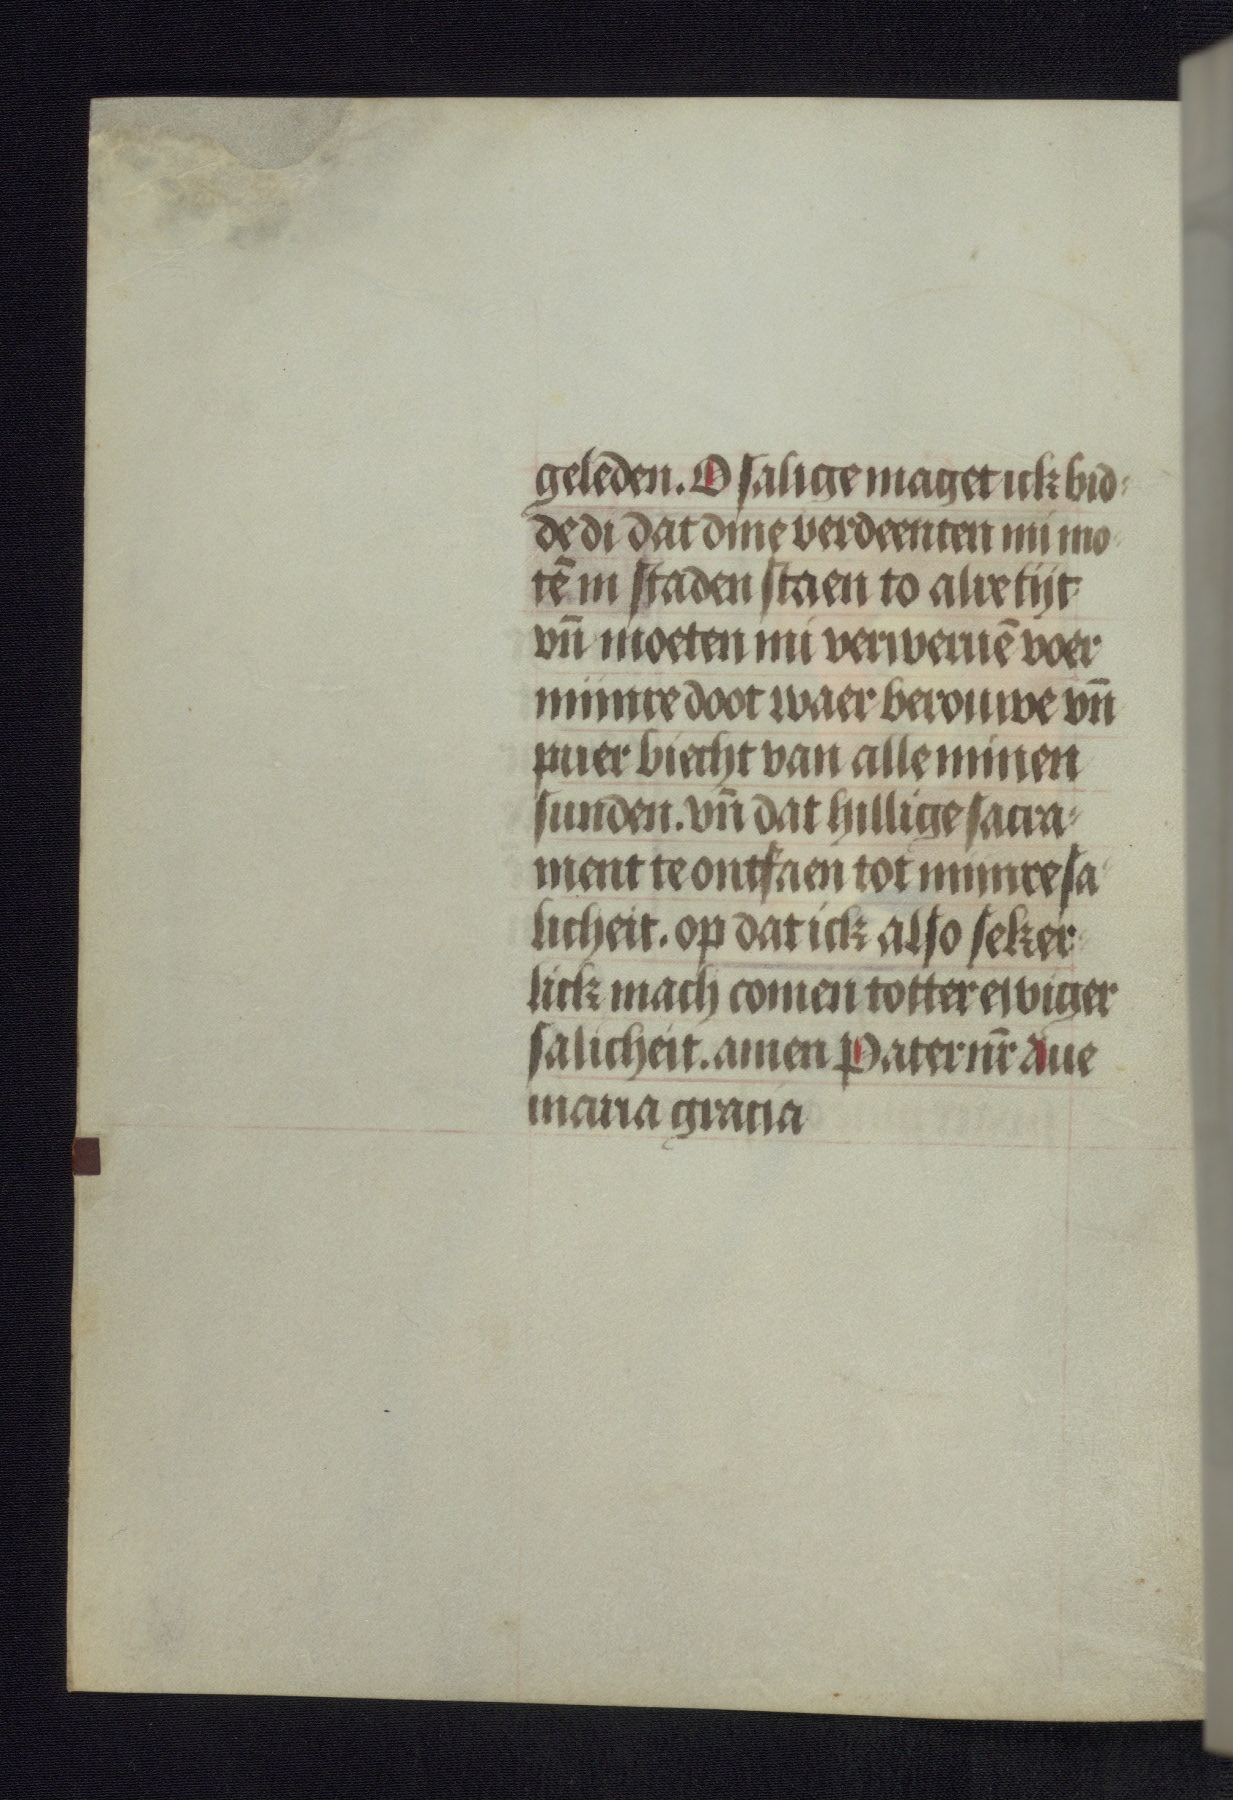 geleden. O salige maget ick bid-
de di dat dine verdeenten mi mo-
tē in staden staen to alre tijt
vn̄ moeten mi verweruē voer
minre doot waer berouwe vn̄
puer biecht van alle minen
sunden. vn̄ dat hillige sacra-
ment te ontfaen tot minre sa-
licheit. op dat ick also seker-
lick mach comen totter ewiger
salicheit. amen Pater nr̄ Aue
maria gracia